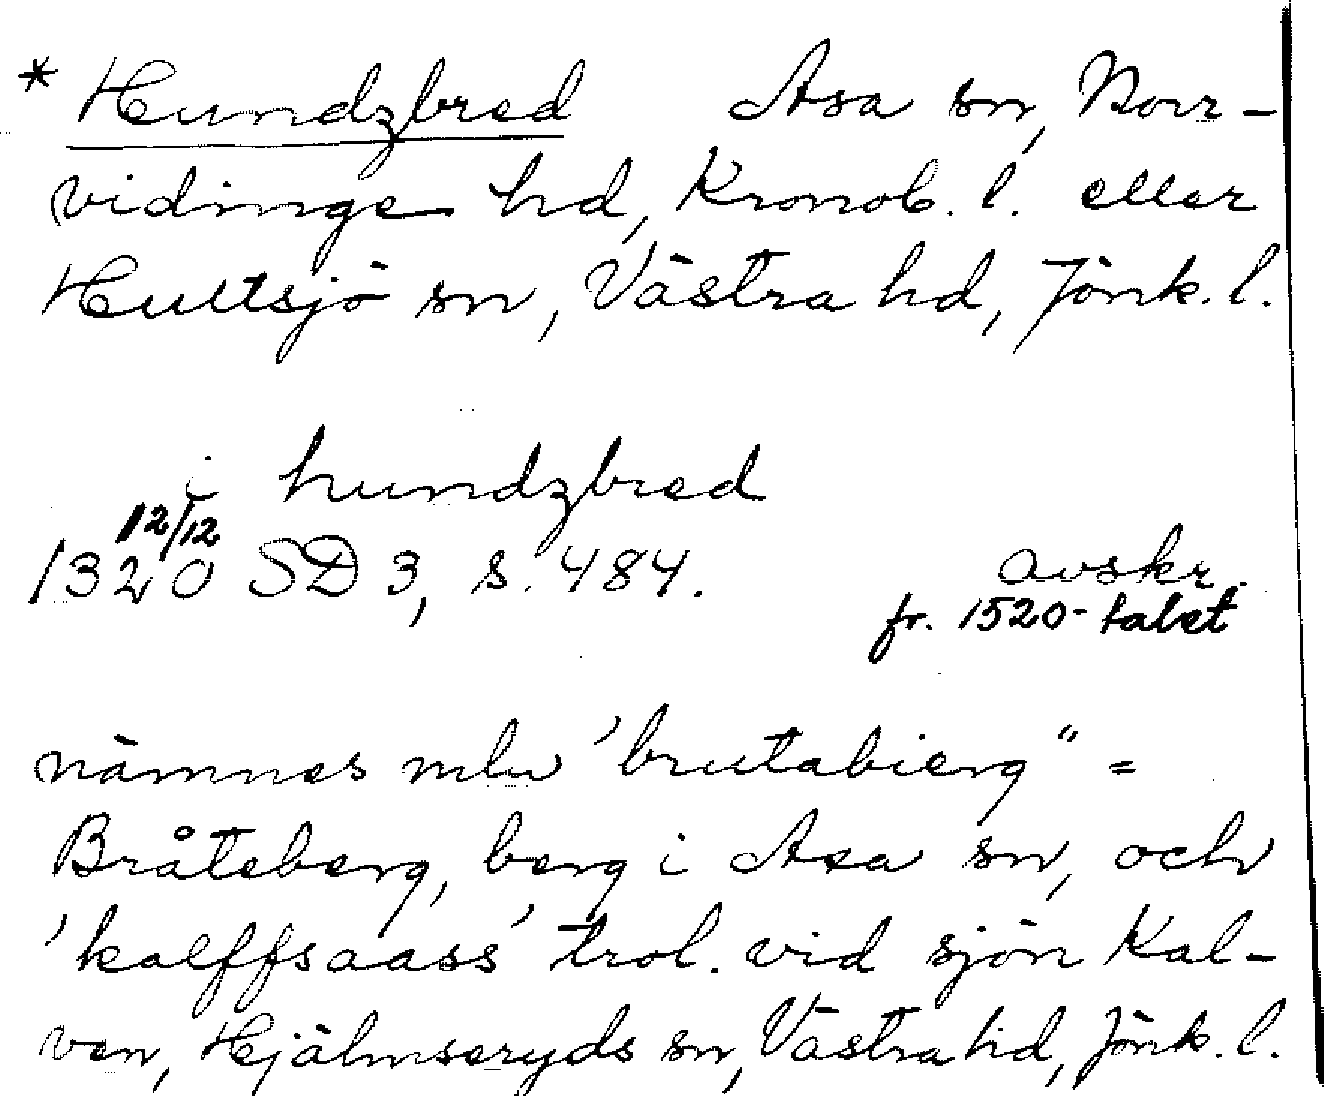 * Hundzbred Asa sn, Norr-
vidinge hd, Kronob. l. eller
Hultsjö sn, Västra hd, Jönk. l.
i hundzbred
12/12
1320 SD 3, s. 484. avskr.
fr. 1520-talet
nämnes mln 'brutabierg" =
Bråteberg, berg i Asa sn, och
'kalffsaass' trol. vid sjön Kal-
ven, Hjälmseryds sn, Västra hd, Jönk. l.